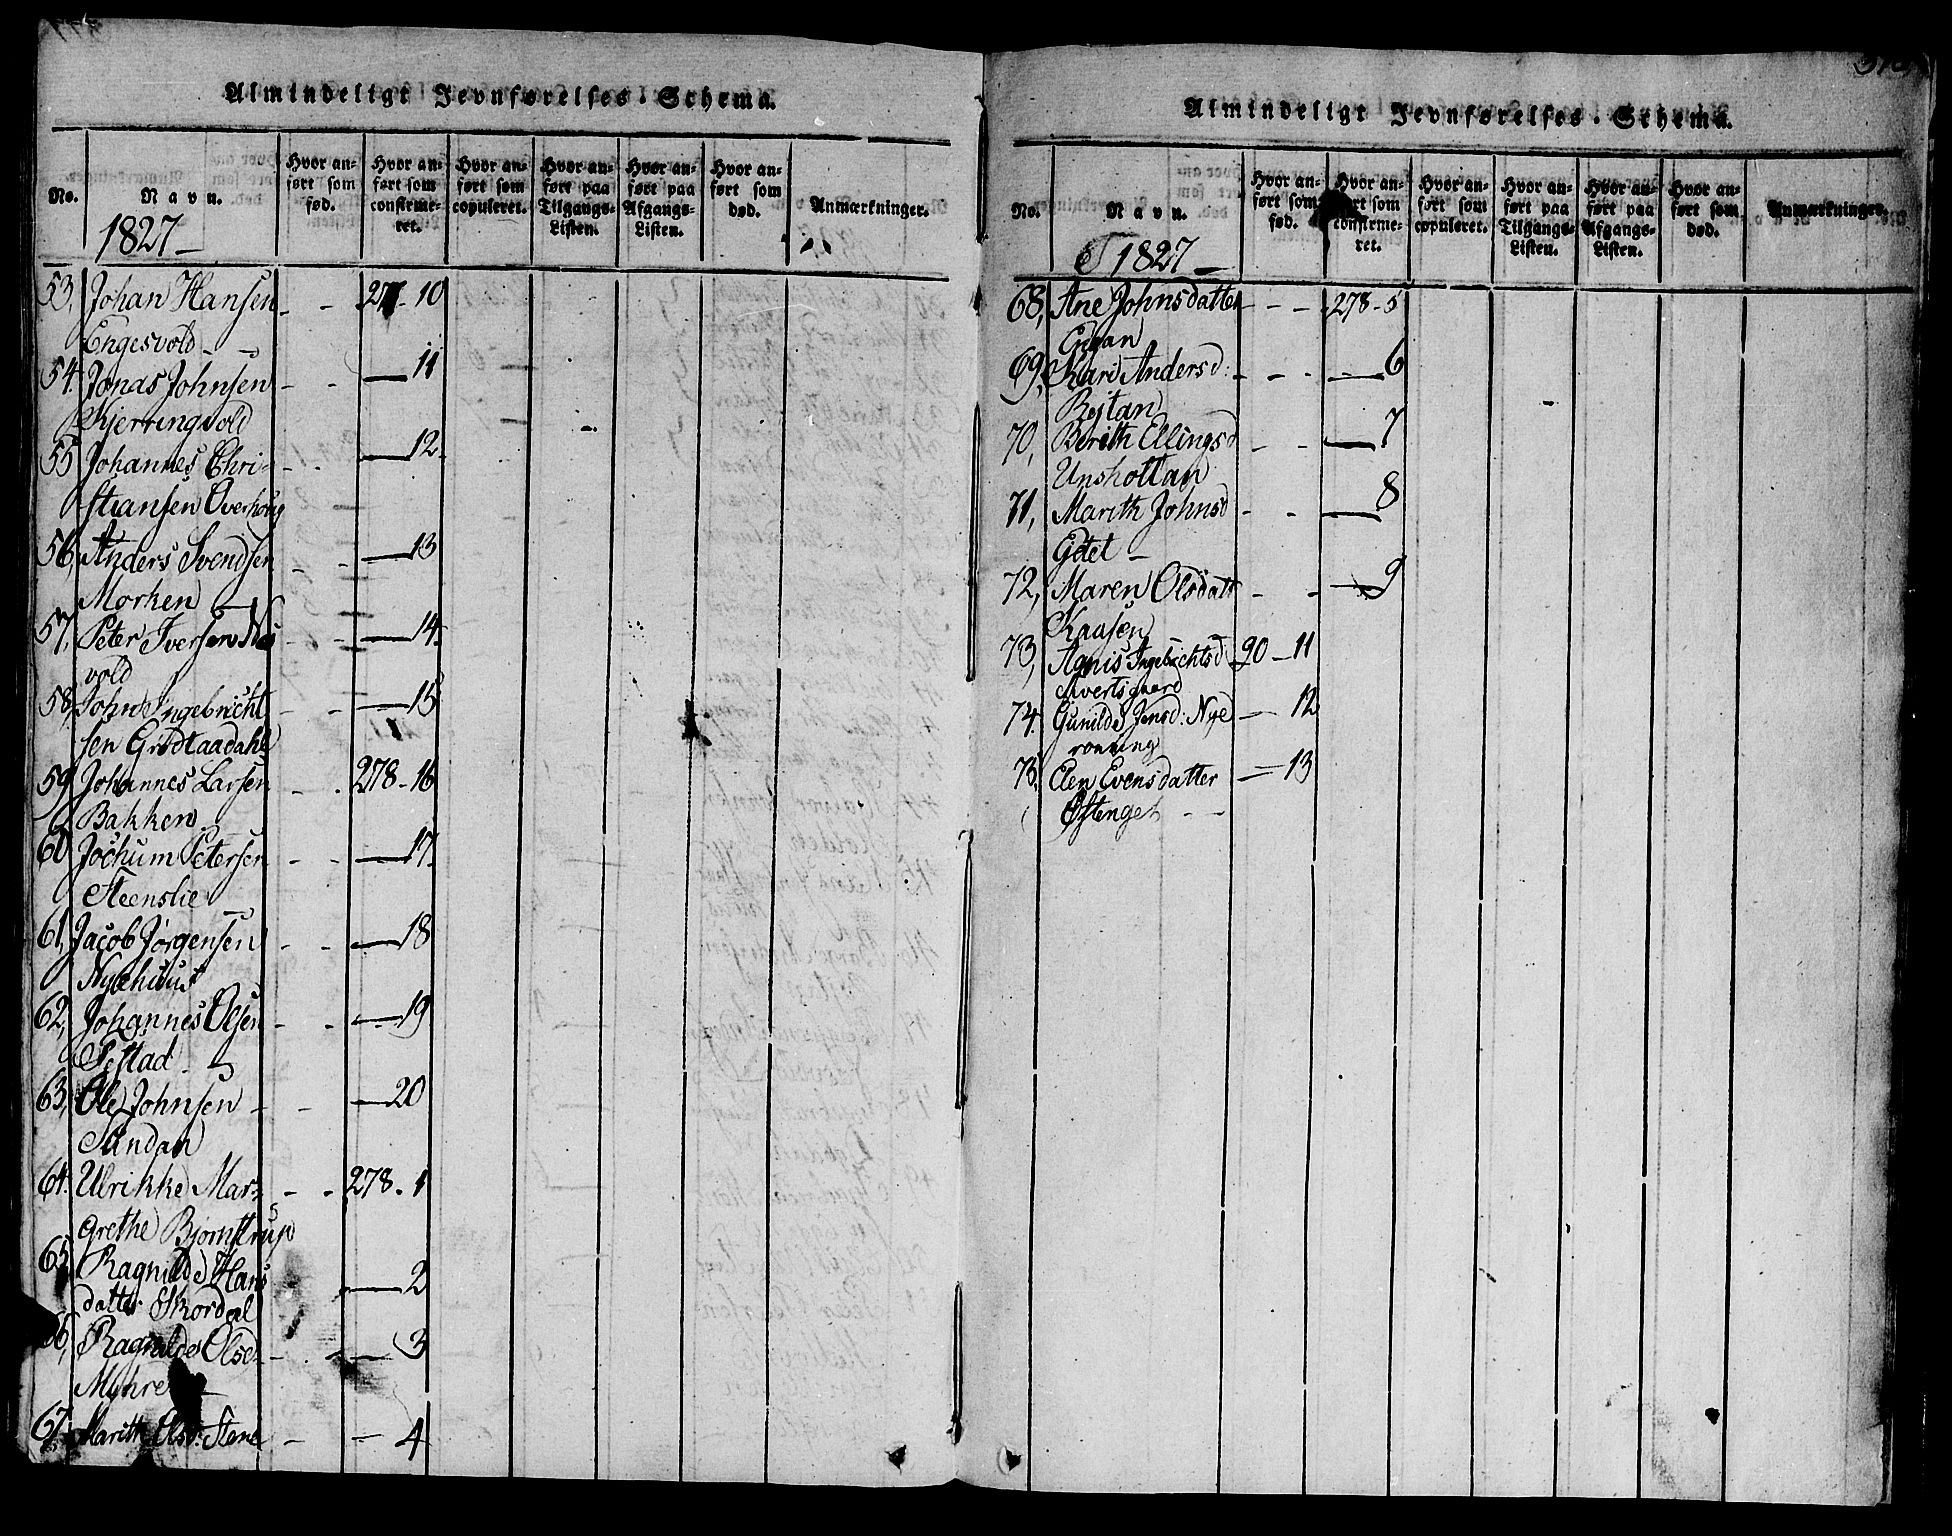 Almindeligt Jevnførelses-Schema.
No.
Navn.
Hvor anført som fød.
Hvor anført som confirmeret.
Hvor anført som copuleret.
Hvor anført paa Tilgangs-Listen.
Hvor anført paa Afgangs-Listen.
Hvor anført som død.
Anmærkninger.
1827
53, Johan Hansen - - 277-10
Engesvold - -
54. Jonas Johnsen - - — 11
Kjerringvold
55 Johannes Chri- - - — 12
stiansen Overhoug
56, Anders Svendsen - - — 13
Morken —
57, Peter Iversen Næs - — 14
vold
58, John Ingebricht - - — 15
sen Grødtaadahl
59, Johannes Larsen - - 278-16
Bakken
60 Jochum Petersen - - — 17
Steenslie
61, Jacob Jørgensen - - — 18
Nyehuus
62, Johannes Olsen - - — 19
63, Ole Johnsen - - — 20
Sundan
64. Ulrikke Mar- - - 278-1
grethe Bjørnstrup
65, Ragnilde Hans — 2
datter Skordal
66, Ragnilde Olsd - - — 3
Myhre
67, Marith Elsd: Stene - — 4
Almindeligt Jevnførelses-Schema.
No.
Navn.
Hvor anført som fød.
Hvor anført som confirmeret.
Hvor anført som copuleret.
Hvor anført paa Tilgangs-Listen.
Hvor anført paa Afgangs-Listen.
Hvor anført som død.
Anmærkninger.
1827 —
68, Ane Johnsdatter - - 278-5
69, Kari Andersd: - - - — 6
Bostan
70, Berith Ellingsd - - — 7
Unsholtan
71, Marith Johnsd - - — 8
72, Maren Olsdatt - - — 9
Kaasen
73, Agnis Ingebrichtsd: 90-11
Sivertsgaard
74. Gunilde Jensd: Nye — 12
rønning
75, Elen Evensdatter — 13
Østenget - -